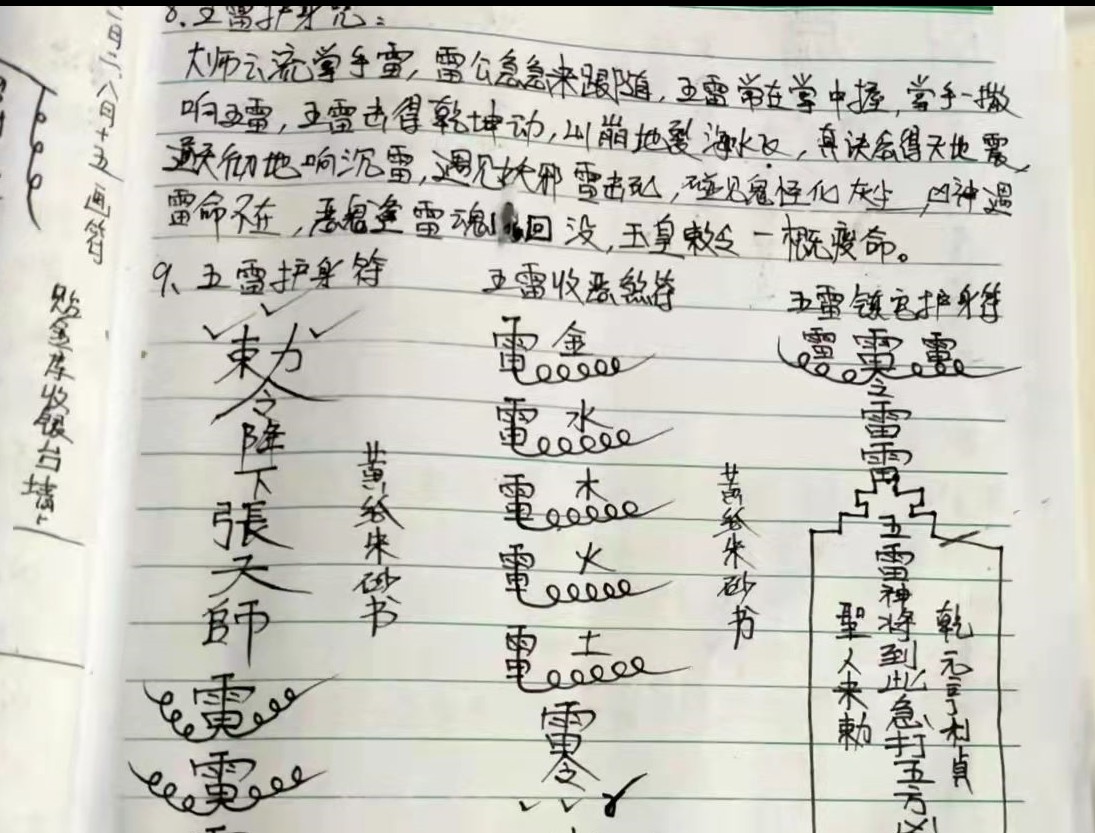 8.五雷护身咒:
大师云流掌手雷,雷公急急来跟随,五雷常在掌中握,掌手一撒
响五雷,五雷击得乾坤动,山崩地裂海水飞,真诀念得天地震,
通天彻地响沉雷,遇见妖邪雷击死,碰见鬼怪化灰尘,凶神遇
雷命不在,恶鬼逢雷魂 回没,玉皇敕令一概废命。
9、五雷护身符
五雷收恶煞符
五雷镇宅护身符
月二八月十五画符
贴金库收银台墙上
令
之
降
下
張
天
師
黄纸朱砂书
金
水
木
火
土
令
黄纸朱砂书
雷
雷
五雷神将到此急打五方凶
乾元亨利貞
聖人来勅